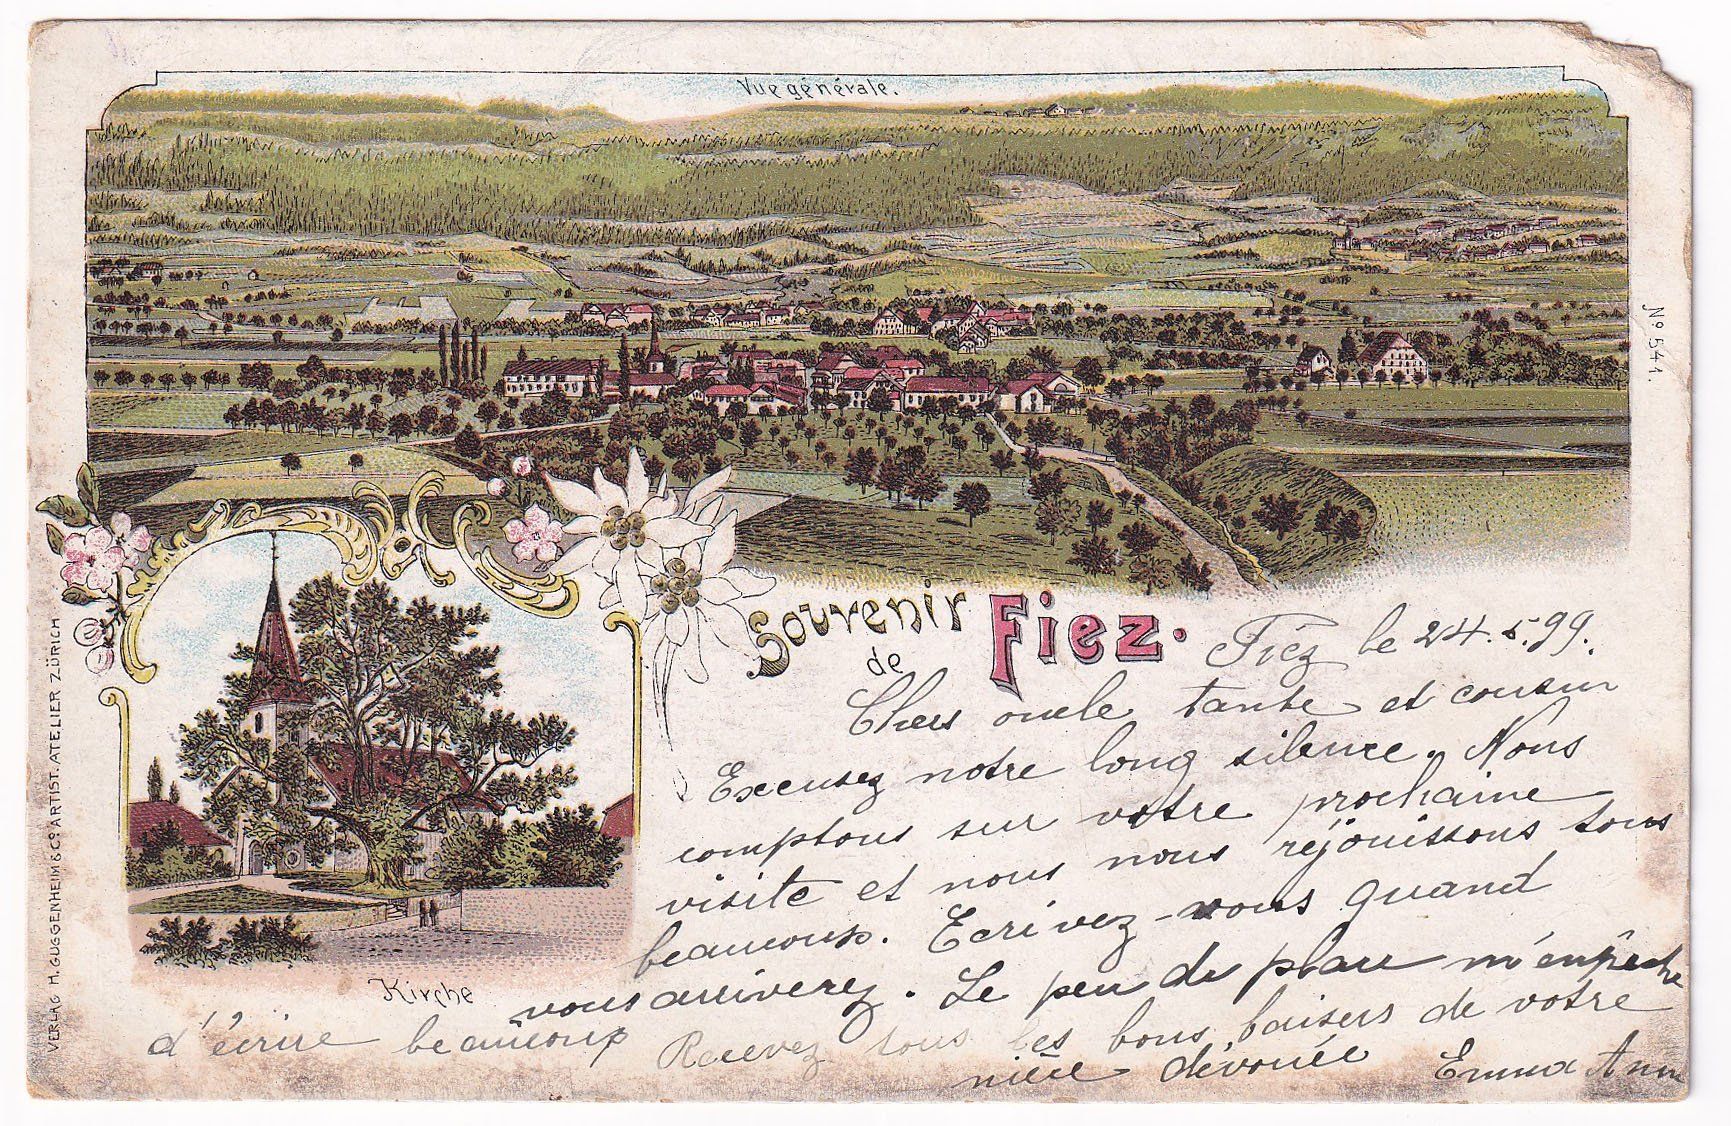 Vue générale.
Nº 541.
VERLAG H. GUGGENHEIM & Cº. ARTIST. ATELIER ZÜRICH
Kirche
Souvenir
de
Fiez.
Fiez le 24.5.99.
Chers oncle tante et cousin
Excusez notre long silence. Nous
comptons sur votre prochaine
visite et nous nous réjouissons tous
beaucoup. Ecrivez-vous quand
vous arriverez. Le peu de place m'empêche
d'écrire beaucoup Recevez tous les bons baisers de votre
nièce dévouée Emma